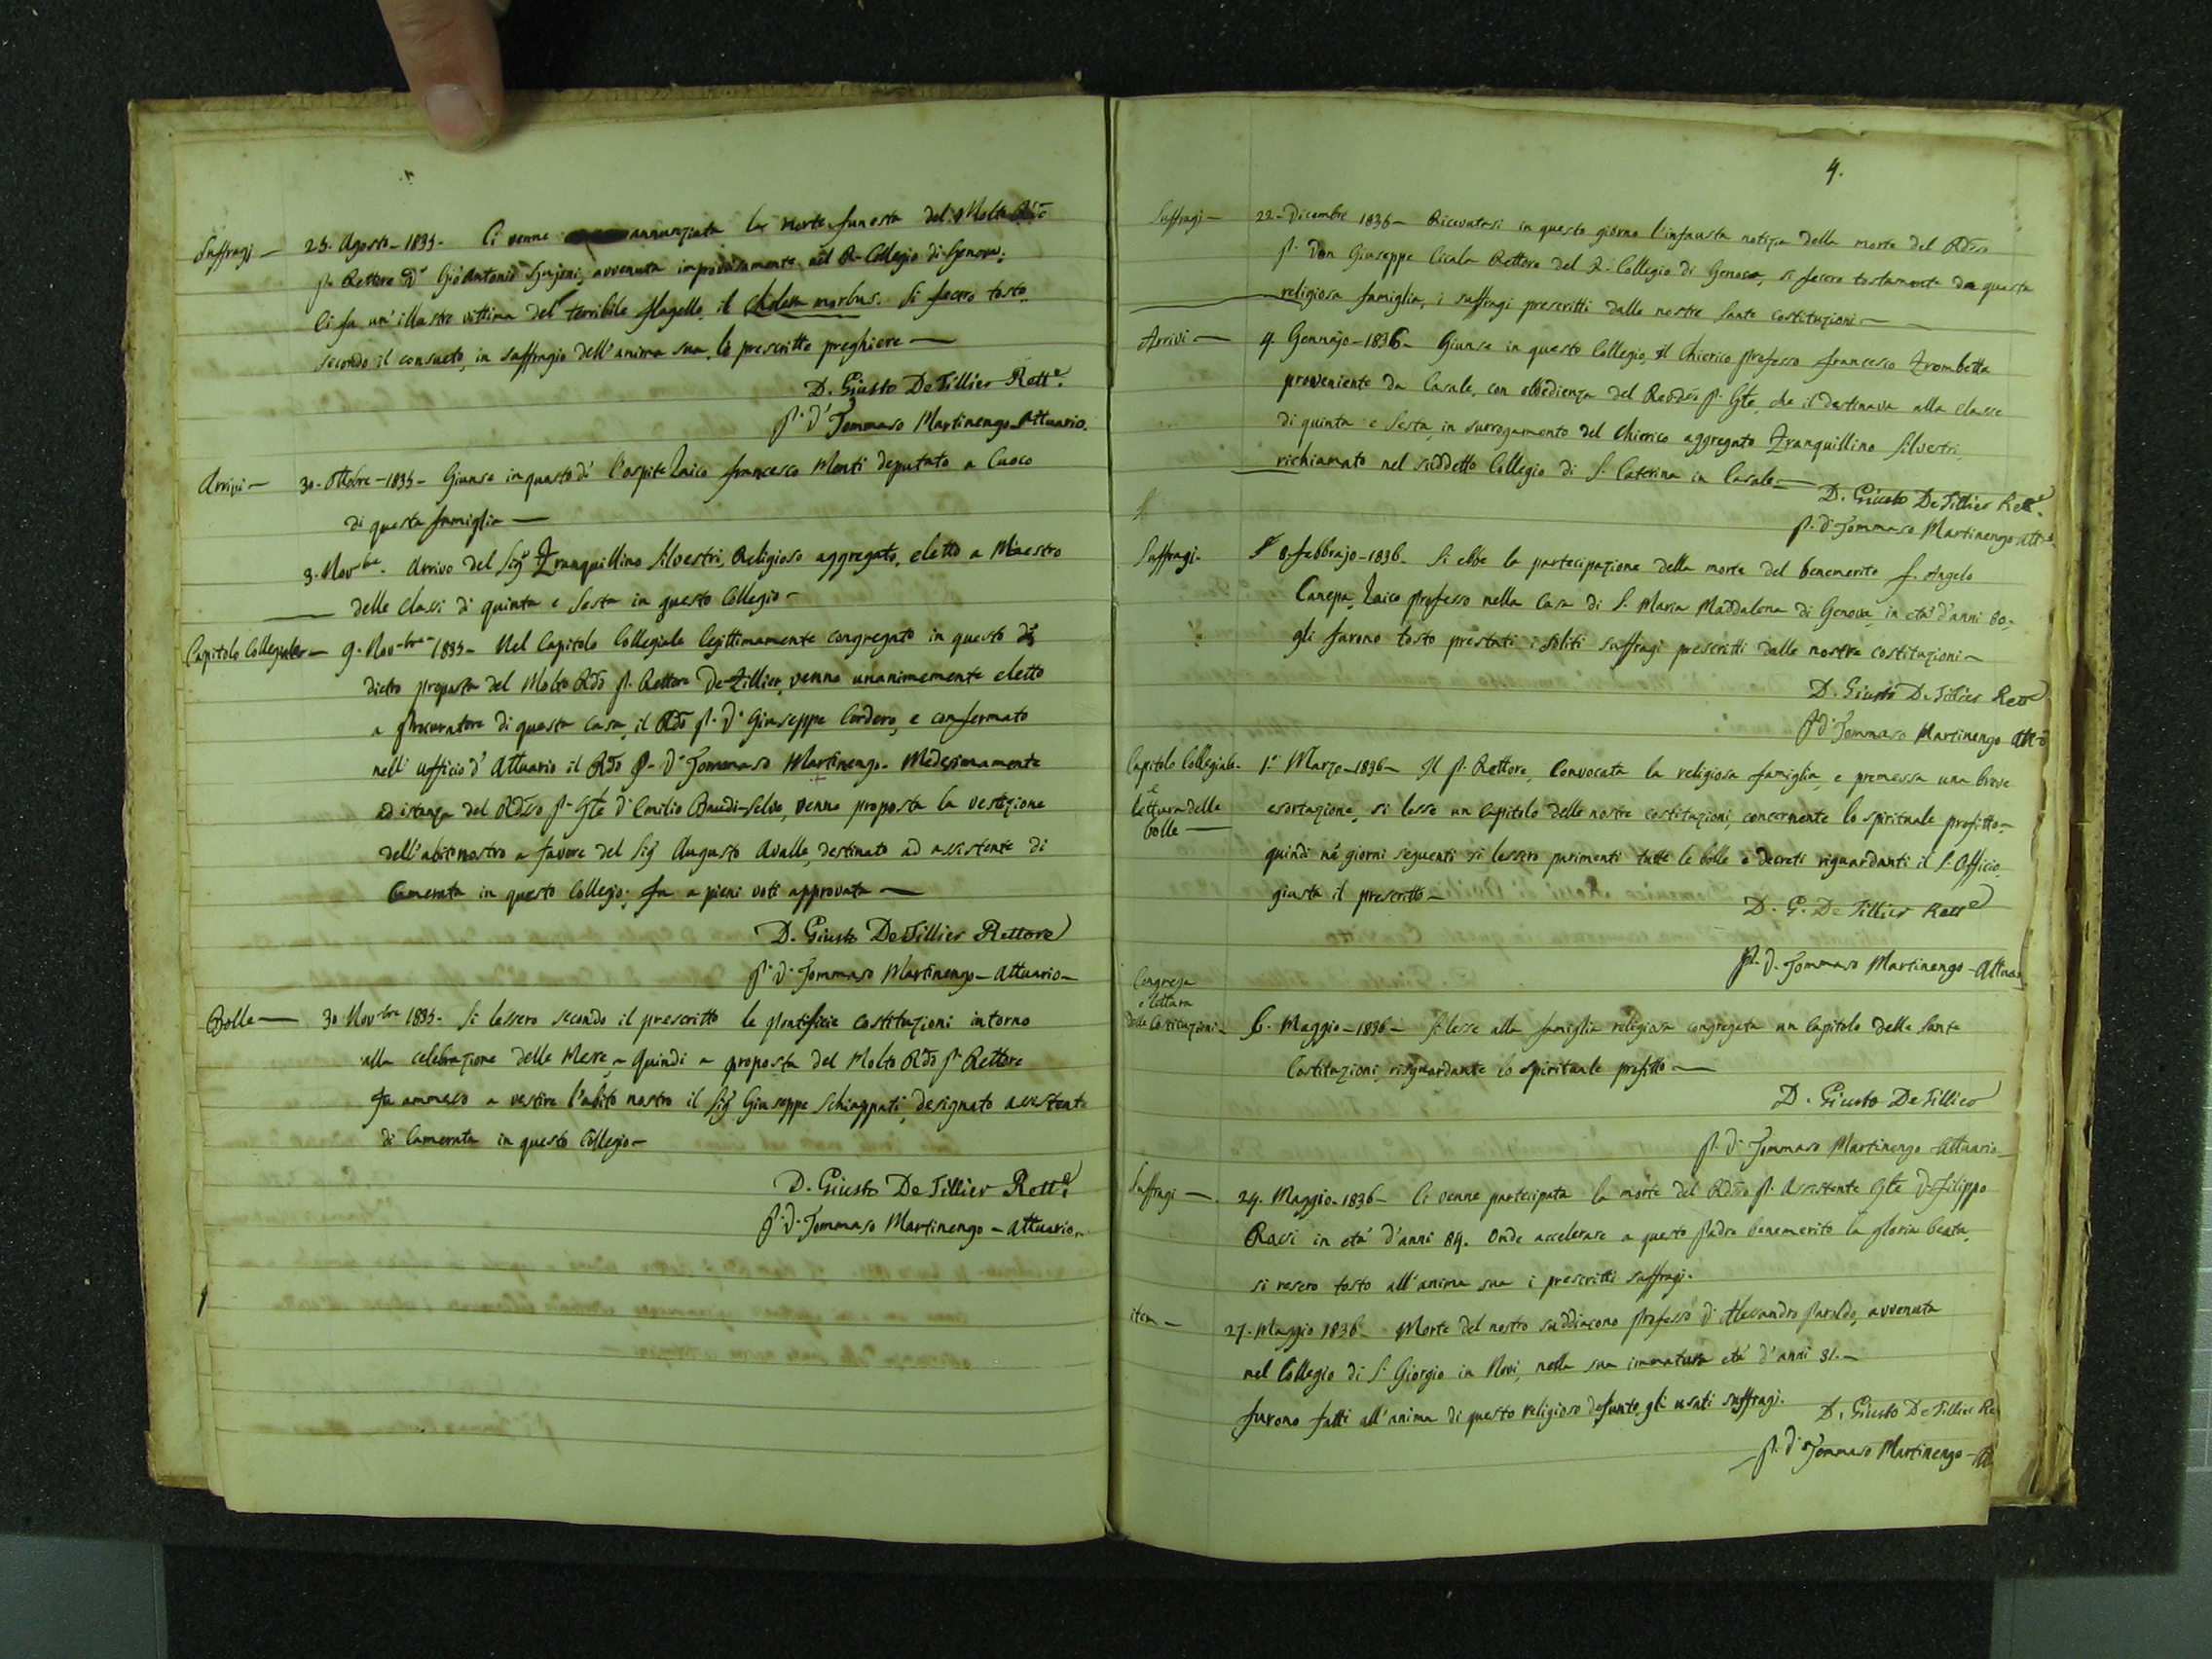 Suffragj — 25. Agosto - 1835. Ci venne annunziata la morte funesta del Molto Rdo
P. Rettore Dn Gio Antonio avvenuta improvvisamente nel R. Collegio di Genova;
Ei fu un' illustre vittima del terribile flagello, il Cholera morbus. Si fecero tosto
secondo il consueto, in suffragio dell'anima sua, le prescritte preghiere —
D. Giusto De Tillier Rette.
P. Dn Tommaso Martinengo Attuario.
Arrivi — 30. Ottobre - 1835 - Giunse in questo dì l'ospite Laico Francesco Monti deputato a Cuoco
di questa famiglia —
3. Novbre. Arrivo del Sigr Tranquillino Silvestri, Religioso aggregato, eletto a Maestro
delle Classi di quinta e Sesta in questo Collegio -
Capitolo Collegiale — 9. Novbre - 1835 - Nel Capitolo Collegiale legittimamente congregato in questo dì
dietro proposta del Molto Rdo P. Rettore De-Tillier, venne unanimemente eletto
a Procuratore di questa Casa, il Rdo P. Dn Giuseppe Cordero, e confermato
nell' ufficio d' Attuario il Rdo P. Dn Tommaso Martinengo. Medesimamente
ad istanza del Rdsso P. Gle Dn Emilio Baudi-Selve, venne proposta la vestizione
dell'abito nostro a favore del Sigr Augusto Avalle, destinato ad assistente di
Camerata in questo Collegio; fu a pieni voti approvata —
D. Giusto De Tillier Rettore
P. D. Tommaso Martinengo - Attuario -
Bolle — 30 Novbre 1835. Si lessero secondo il prescritto le Pontificie Costituzioni intorno
alla celebrazione delle Messe, - quindi a proposta del Molto Rdo P. Rettore
fu ammesso a vestire l'abito nostro il Sigr Giuseppe Schiappati, designato assistente
di Camerata in questo Collegio -
D. Giusto De Tillier Rette.
P. D. Tommaso Martinengo - Attuario.
4.
Suffragi — 22 - Dicembre 1835 - Ricevutasi in questo giorno l'infausta notizia della morte del Rdsso
P. Don Giuseppe Cicala Rettore del R. Collegio di Genova, si fecero tostamente da questa
religiosa famiglia, i suffragi prescritti dalle nostre Sante Costituzioni —
Arrivi — 4 Gennajo - 1836 - Giunse in questo Collegio, il Chierico Professo Francesco Trombetta
proveniente da Casale, con obbedienza del P. Gle, che il destinava alla classe
di quinta e Sesta, in surrogamento del Chierico aggregato Tranquillino Silvestri,
richiamato nel suddetto Collegio di S. Caterina in Casale. —
D. Giusto De Tillier Rette.
P. Dn Tommaso Martinengo Atto.
Suffragi. 8. febbrajo - 1836. Si ebbe la partecipazione della morte del benemerito f. Angelo
Canepa, Laico Professo nella Casa di S. Maria Maddalena di Genova, in età d'anni 80;
gli furono tosto prestati i soliti suffragi prescritti dalle nostre costituzioni -
D. Giusto De Tillier Rette
P. Dn Tommaso Martinengo Atto
Capitolo Collegiale. 1.o Marzo - 1836 - Il P. Rettore, Convocata la religiosa famiglia, e premessa una breve
e
lettura delle
bolle —
esortazione, si lesse un Capitolo delle nostre costituzioni, concernente lo spirituale profitto -
quindi nè giorni seguenti si lessero parimenti tutte le bolle e decreti riguardanti il S. Officio
giusta il prescritto -
D. G. De Tillier Rette
P. D. Tommaso Martinengo - Attuar
Congrega
e lettura
delle Costituzioni - 6. Maggio - 1836 - Si lesse alla famiglia religiosa congregata un Capitolo delle Sante
Costituzioni, risguardante lo spirituale profitto —
D. Giusto De Tillier
P. Dn Tommaso Martinengo Attuario -
Suffragi — 24. Maggio. 1836 - Ci venne partecipata la morte del Rdsso P. Assistente Gle Dn Filippo
Rossi in età d'anni 84. Onde accelerare a questo Padre benemerito la gloria beata,
si resero tosto all'anima sua i prescritti suffragi.
item — 27. Maggio 1836 - Morte del nostro suddiacono Professo Dn Alessandro Paroldo, avvenuta
nel Collegio di S. Giorgio in Novi, nella sua immatura età d'anni 31. -
furono fatti all'anima di questo religioso defunto, gli usati suffragi.
D. Giusto De Tillier Re
P. Dn Tommaso Martinengo - At